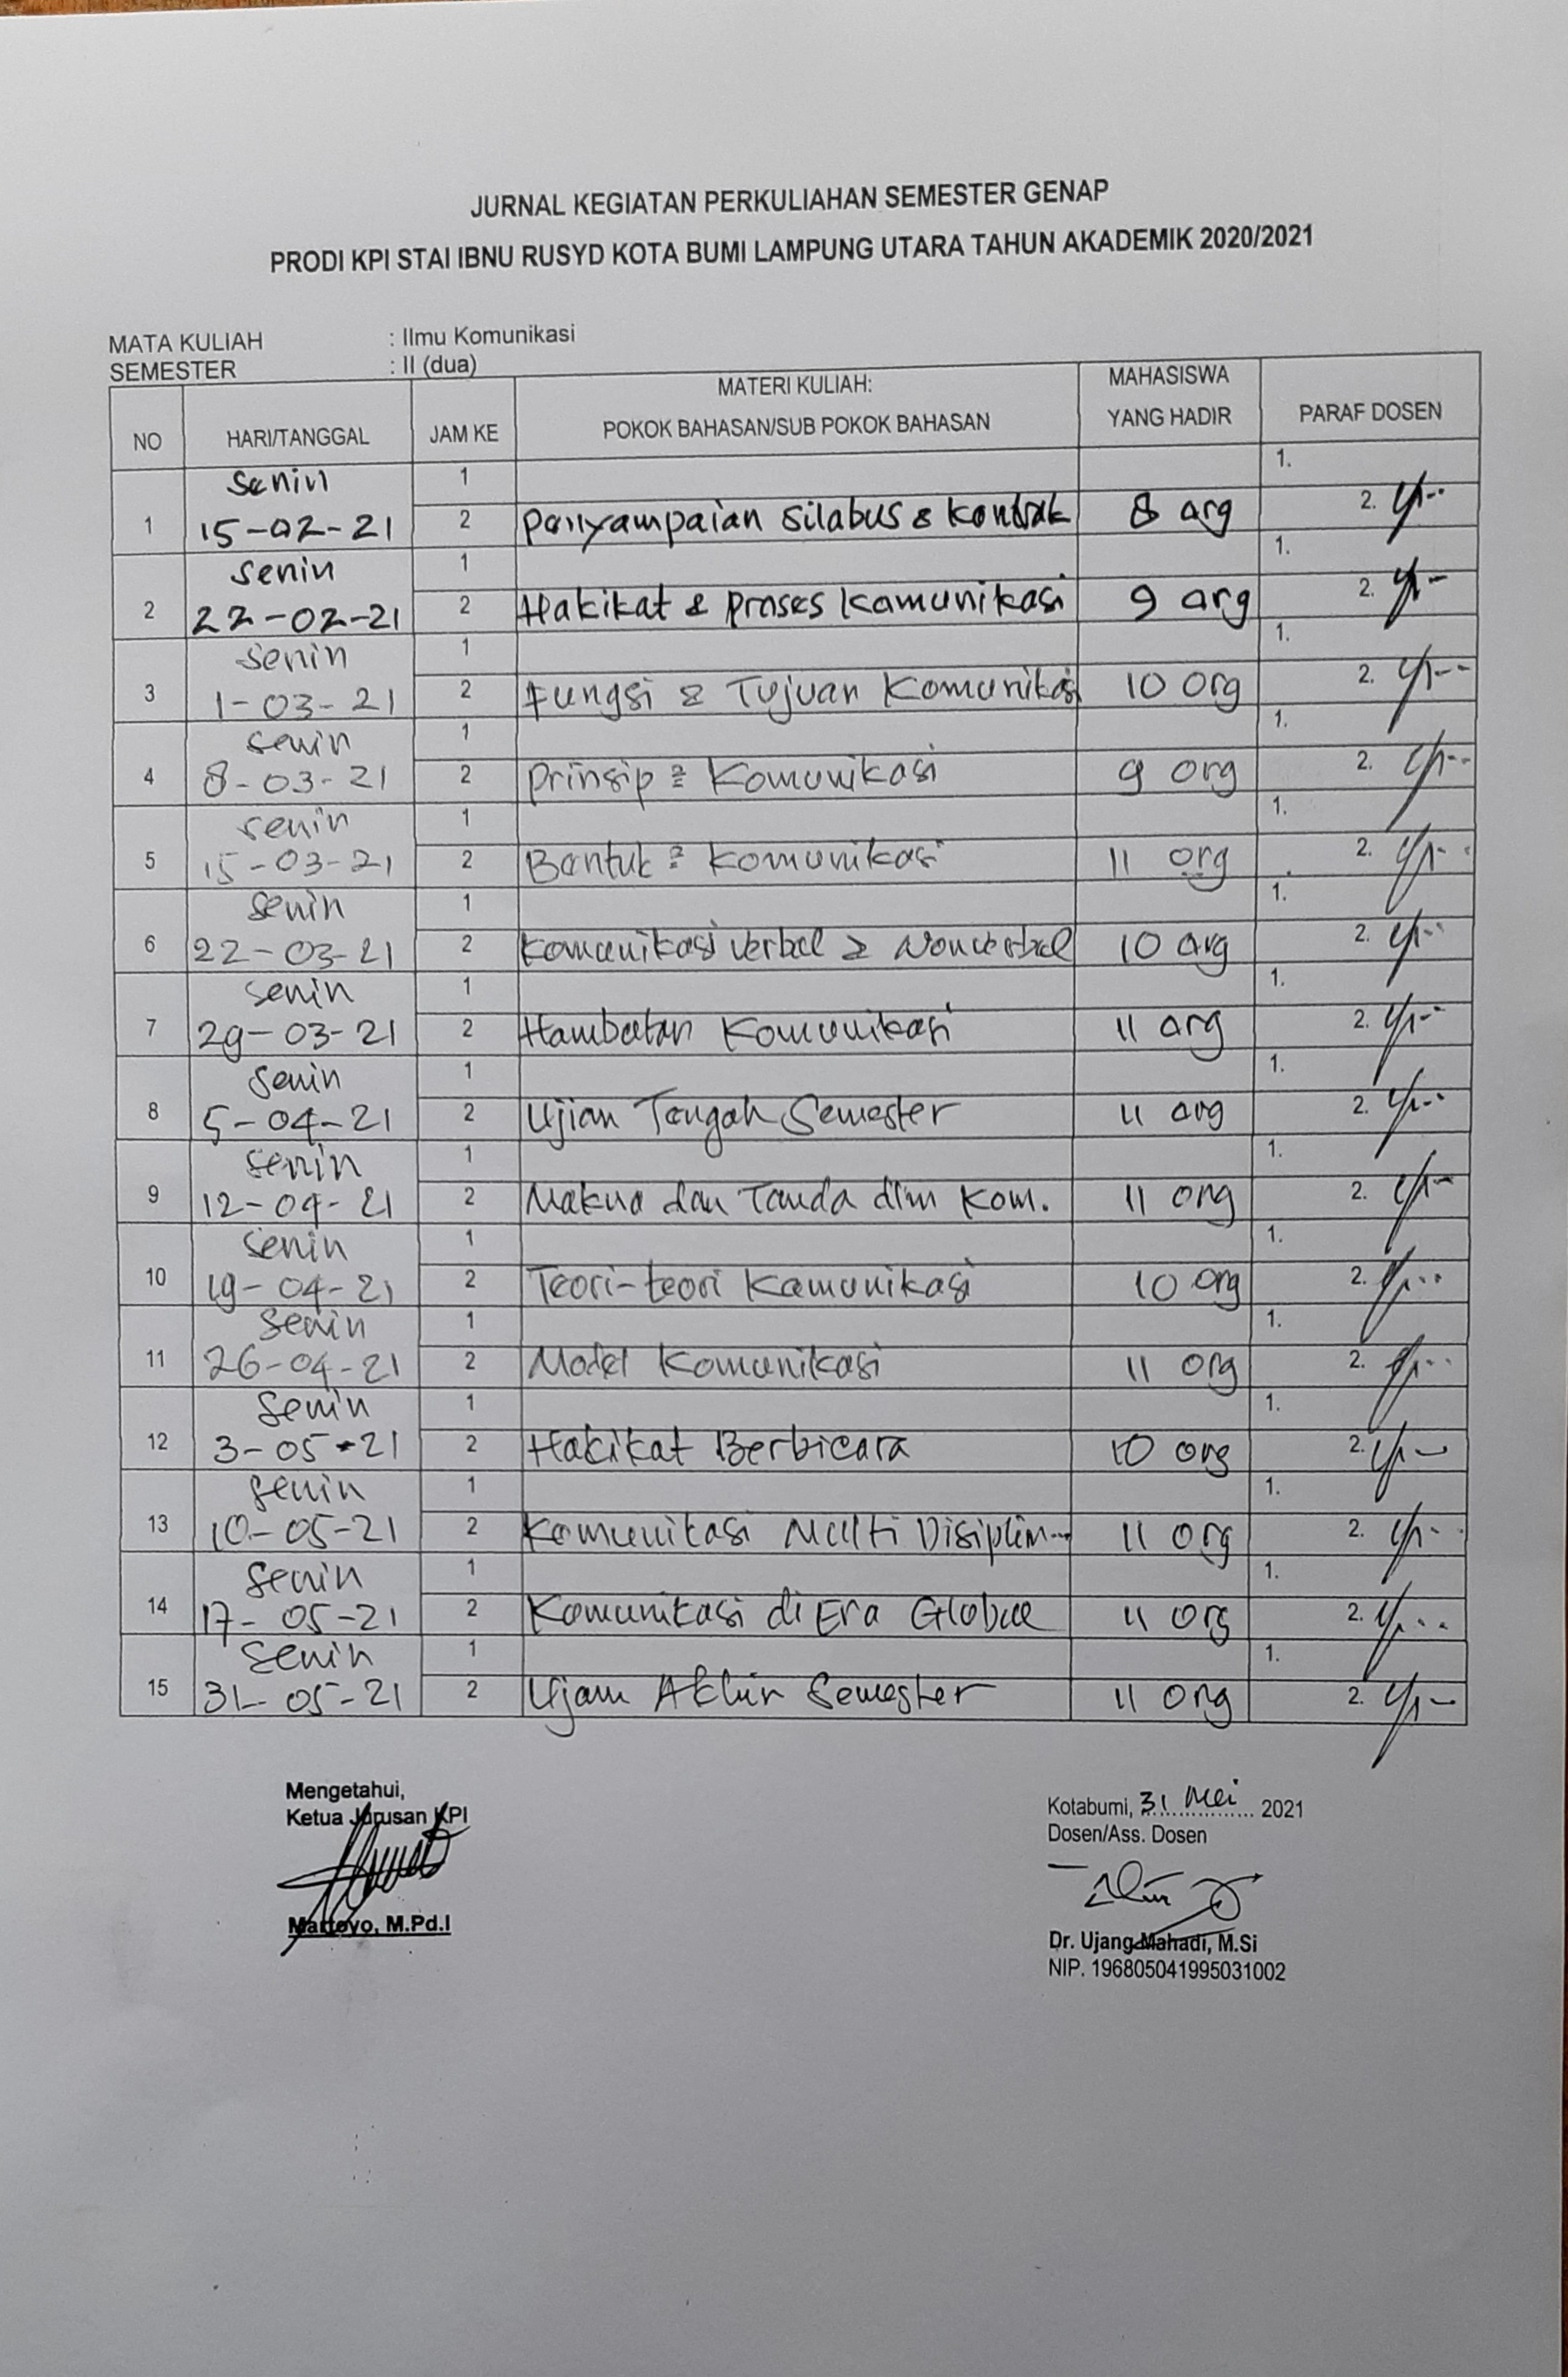 JURNAL KEGIATAN PERKULIAHAN SEMESTER GENAP
PRODI KPI STAI IBNU RUSYD KOTA BUMI LAMPUNG UTARA TAHUN AKADEMIK 2020/2021
MATA KULIAH : Ilmu Komunikasi
SEMESTER : II (dua)
NO HARI/TANGGAL JAM KE MATERI KULIAH: POKOK BAHASAN/SUB POKOK BAHASAN MAHASISWA YANG HADIR PARAF DOSEN
Senin 1 1.
1 15-02-21 2 Penyampaian Silabus & Kontrak 8 org 2.
Senin 1 1.
2 22-02-21 2 Hakikat & Proses Komunikasi 9 org 2.
Senin 1 1.
3 1-03-21 2 Fungsi & Tujuan Komunikasi 10 org 2.
Senin 1 1.
4 8-03-21 2 Prinsip2 Komunikasi 9 org 2.
Senin 1 1.
5 15-03-21 2 Bentuk2 Komunikasi 11 org 2.
Senin 1 1.
6 22-03-21 2 Komunikasi Verbal & Nonverbal 10 org 2.
Senin 1 1.
7 29-03-21 2 Hambatan Komunikasi 11 org 2.
Senin 1 1.
8 5-04-21 2 Ujian Tengah Semester 11 org 2.
Senin 1 1.
9 12-04-21 2 Makna dan Tanda dlm Kom. 11 org 2.
Senin 1 1.
10 19-04-21 2 Teori-teori Komunikasi 10 org 2.
Senin 1 1.
11 26-04-21 2 Model Komunikasi 11 org 2.
Senin 1 1.
12 3-05-21 2 Hakikat Berbicara 10 org 2.
Senin 1 1.
13 10-05-21 2 Komunikasi Multi Disiplin... 11 org 2.
Senin 1 1.
14 17-05-21 2 Komunikasi di Era Global 11 org 2.
Senin 1 1.
15 31-05-21 2 Ujian Akhir Semester 11 org 2.
Mengetahui,
Ketua Jurusan KPI
Martoyo, M.Pd.I
Kotabumi, 31 Mei 2021
Dosen/Ass. Dosen
Dr. Ujang Mahadi, M.Si
NIP. 196805041995031002